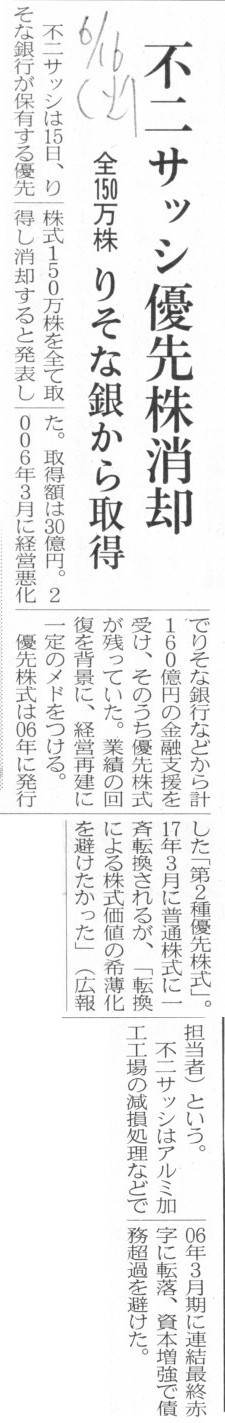 6/16
(土)
不二サッシ優先株消却
全150万株 りそな銀から取得
不二サッシは15日、り
そな銀行が保有する優先
株式150万株を全て取
得し消却すると発表し
た。取得額は30億円。2
006年3月に経営悪化
でりそな銀行などから計
160億円の金融支援を
受け、そのうち優先株式
が残っていた。業績の回
復を背景に、経営再建に
一定のメドをつける。
優先株式は06年に発行
した「第2種優先株式」。
17年3月に普通株式に一
斉転換されるが、「転換
による株式価値の希薄化
を避けたかった」（広報
担当者）という。
不二サッシはアルミ加
工工場の減損処理などで
06年3月期に連結最終赤
字に転落、資本増強で債
務超過を避けた。